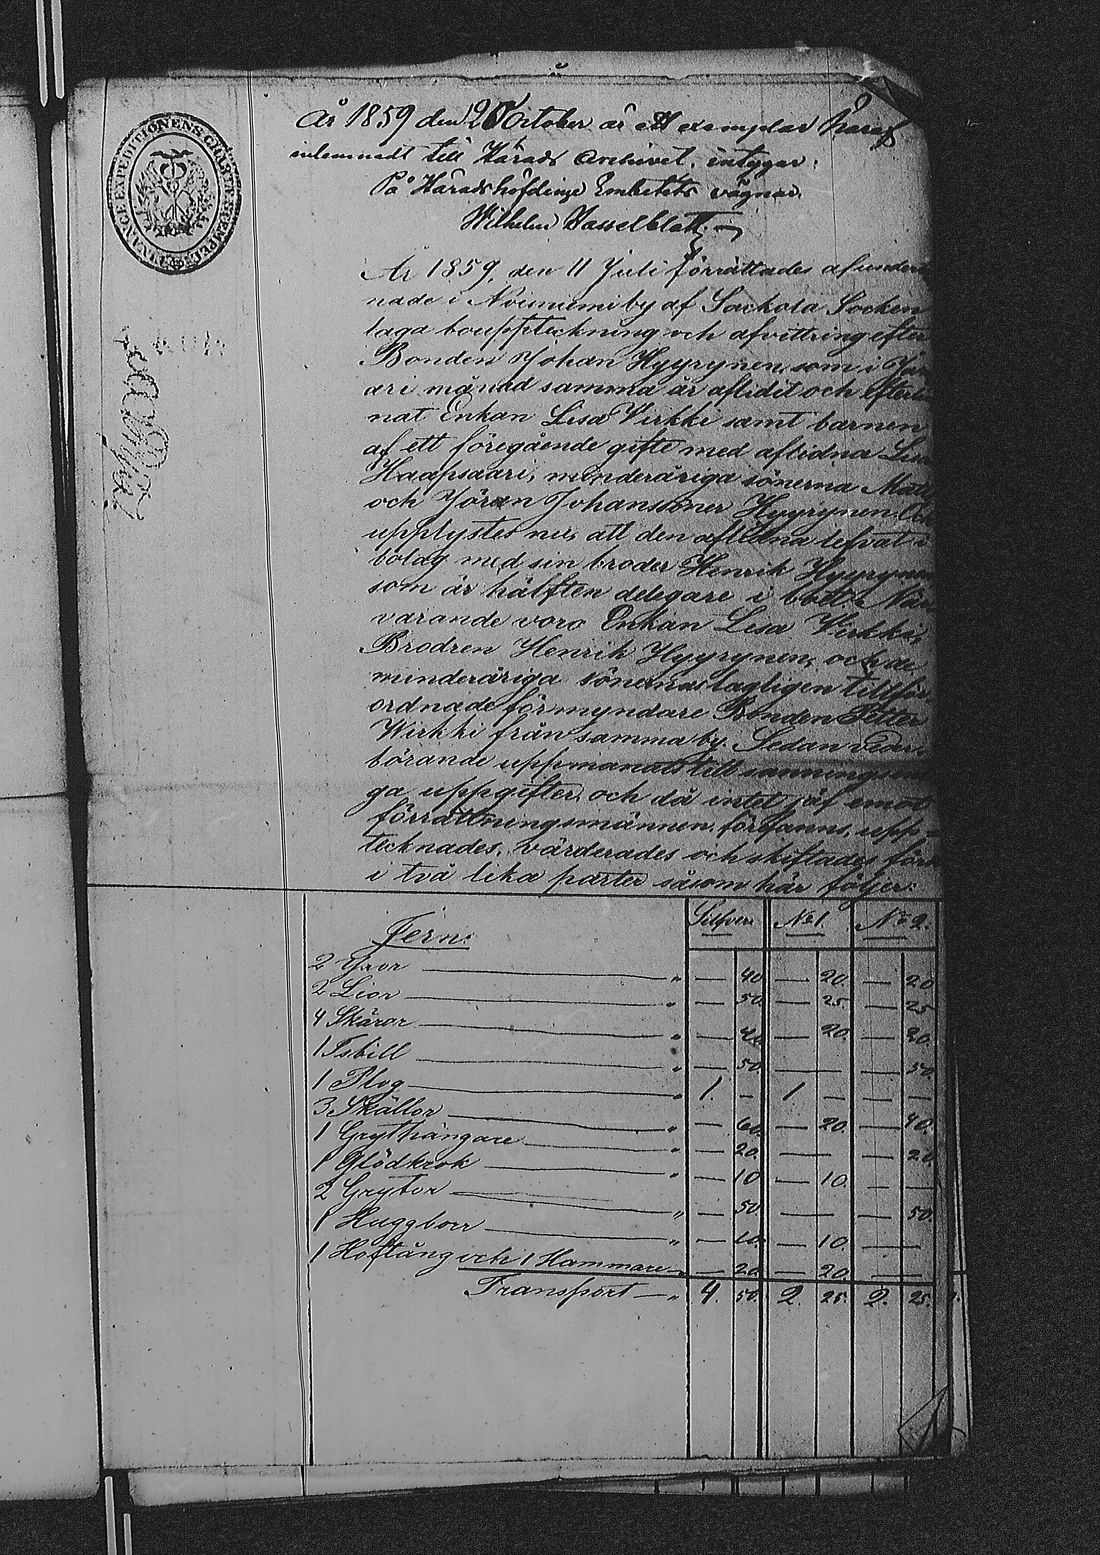 År 1859 den 20 October är ett exemplar häraf
inlemnadt till Härads Archivet, intygar:
På Häradshöfdinge Embetets vägnar
Wilhelm Hasselblatt
FINANCE EXPEDITIONENS CHARTÆ STEMPEL
År 1859, den 11 Juli förrättades af undertec
nade i Noisniemi by af Sackola Socken
laga bouppteckning och afvittring efter
Bonden Johan Hyyrynen som i Janu
ari månad samma år aflidit och efterlem
nat Enkan Lisa Virkki samt barnen
af ett föregående gifte med aflidna Lisa
Haapsaari, minderåriga sönerna Matts
och Jöran Johanssöner Hyyrynen. Och
upplystes nu, att den aflidna lefvat i
bolag med sin broder Henrik Hyyrynen
som är hälften delegare i boet. När
varande voro Enkan Lisa Virkki,
Brodren Henrik Hyyrynen, och de
minderåriga sönernas lagligen tillför
ordnade förmyndare Bonden Petter
Wirkki från samma by. Sedan veder
börande uppmanats till sanningsenli
ga uppgifter, och då intet jäf emot
förrättningsmännen förefanns, upp=
tecknades, värderades och skiftades först
i två lika parter såsom här följer:
Silfver. No 1. No 2.
Jern:
2 Yxor " — 40 — 20. — 20
2 Lior " — 50 — 25 — 25
4 Skäror " — 40 — 20. — 20.
1 Isbill " — 50 — — 50.
1 Plog " 1. — 1 — —
3 Skällor " — 60. — 20. — 40.
1 Grythängare " — 20. — — 20.
1 Glödkrok " — 10 — 10. — —
2 Grytor " — 50. — — 50.
1 Huggborr " — 10. — 10. —
1 Hoftång och 1 Hammare " — 20. — 20. —
Transport — " 4. 50. 2. 25. 2. 25.